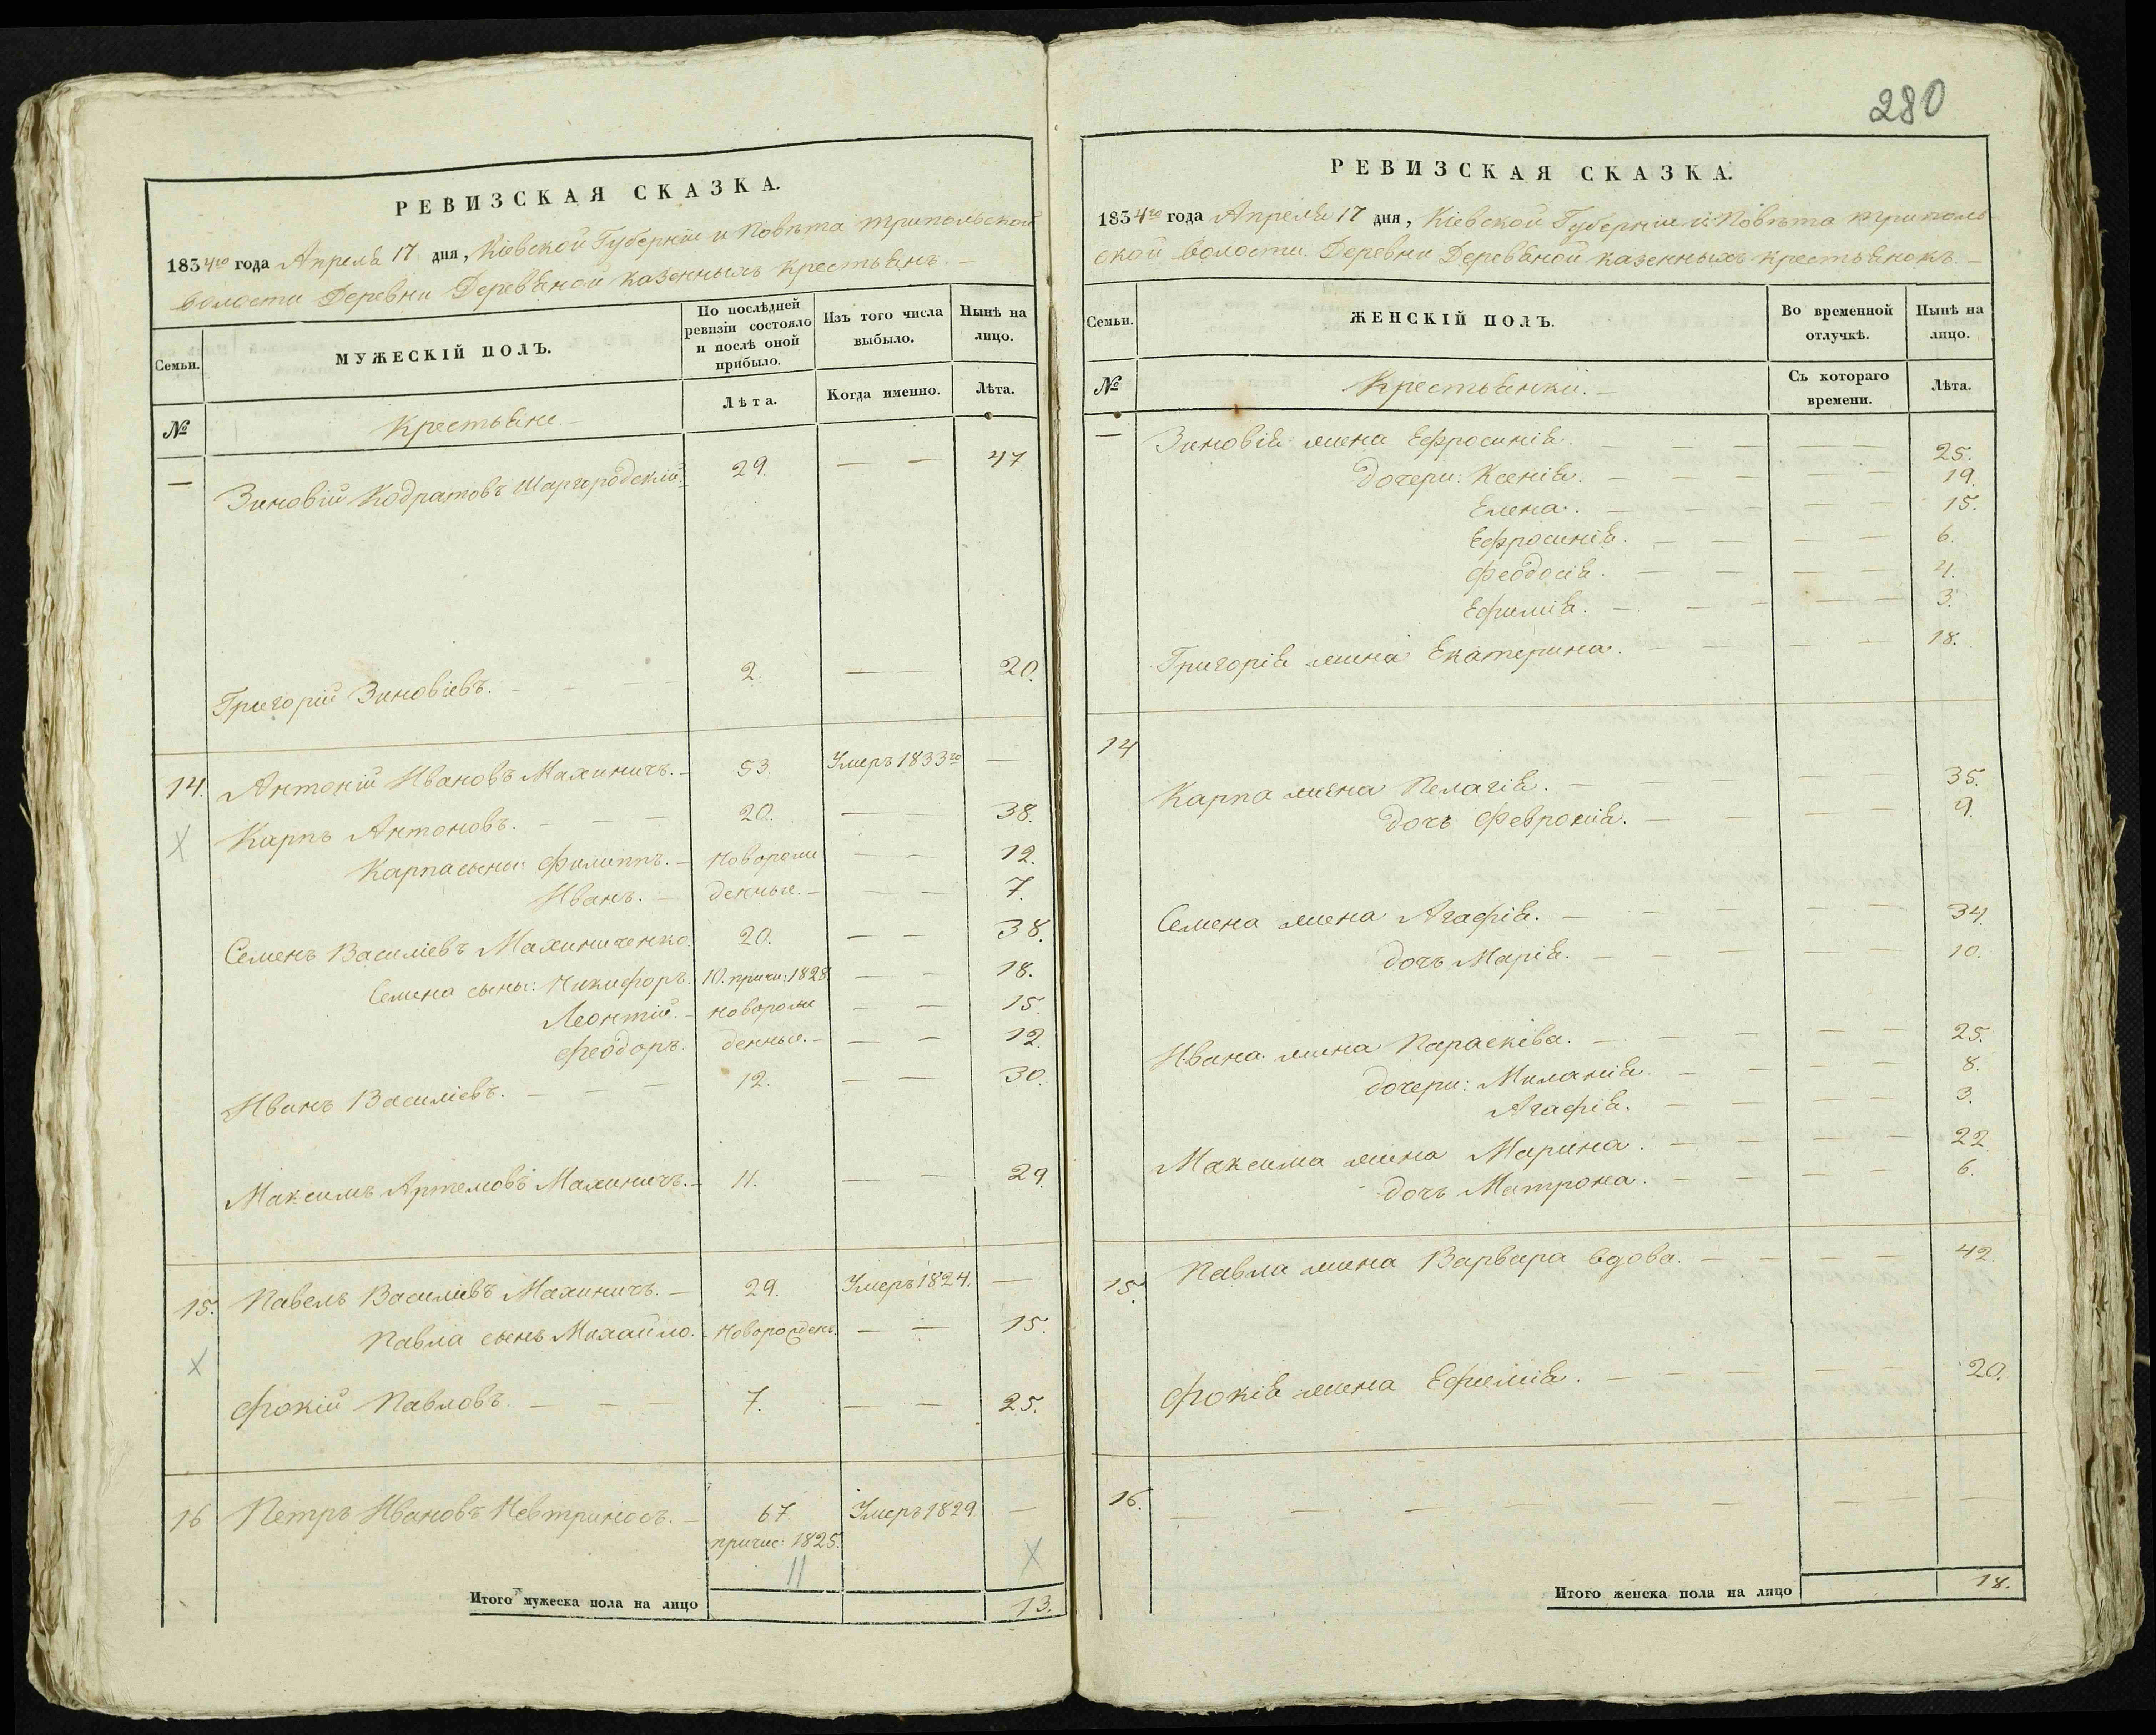 РЕВИЗСКАЯ СКАЗКА.
1834го года Апреля 17 дня, Кіевской Губерніи и Повѣта трипольской
волости Деревни Деревяной казенныхъ крестьянъ. —
Семьи. МУЖЕСКІЙ ПОЛЪ. По послѣдней ревизіи состояло и послѣ оной прибыло. Изъ того числа выбыло. Нынѣ на лицо.
№ Крестьяне — Лѣта. Когда именно. Лѣта.
— Зиновій Кодратовъ Шаргородскій. 29. — — 47
Григорій Зиновіевъ. — — — 2. — 20.
14. Антоній Ивановъ Махиничъ. — 53. Умеръ 1833го —
Х Карпъ Антоновъ. — — — 20. — — 38.
Карпа сыны: Филиппъ. — новорож — — 12.
Иванъ. — денные. — — — 7.
Семенъ Василіевъ Махиниченко. 20. — — 38.
Семена сыны: Никифоръ. 10. причи: 1828 — — 18.
Леонтій. — новорож — — 15.
Феодоръ. денные. — — — 12.
Иванъ Василіевъ. — — — 12. — — 30.
Максимъ Артемовъ Махиничъ. — 11. — — 29.
15. Павелъ Василіевъ Махиничъ. — 29. Умеръ 1824. —
Павла сынъ Михайло. — Новорожден. — — 15.
Х
Фокій Павловъ. — — — 7. — — 25.
16 Петръ Ивановъ Невтриносъ. — 67. Умеръ 1829 —
причис: 1825.
11 Х
Итого мужеска пола на лицо 13.
280
РЕВИЗСКАЯ СКАЗКА.
1834го года Апреля 17 дня, Кіевской Губерніи и Повѣта триполь
ской волости Деревни Деревяной казенныхъ крестьянокъ. —
Семьи. ЖЕНСКІЙ ПОЛЪ. Во временной отлучкѣ. Нынѣ на лицо.
№ Крестьянки. — Съ котораго времени. Лѣта.
— Зиновія жена Ефросинія. — — — — — 25.
дочери: Ксенія. — — — — — 19.
Елена. — — — — — 15.
Ефросинія. — — — — — 6.
Феодосія. — — — — — 4.
Ефимія. — — — — — 3.
Григорія жена Екатерина. — — — — — 18.
14
Карпа жена Пелагія. — — — — — 35.
дочь Февронія. — — — — — 9.
Семена жена Агафія. — — — — — 34.
дочь Марія. — — — — — 10.
Ивана жена Парасківа. — — — — — 25.
дочери: Миланія. — — — — — 8.
Агафія. — — — — — 3.
Максима жена Марина. — — — — 22
дочь Матрона. — — — — 6.
15. Павла жена Варвара вдова. — — — — 42
Фокія жена Ефимія. — — — — — 20.
16. — — — — — — — —
Итого женска пола на лицо 18.